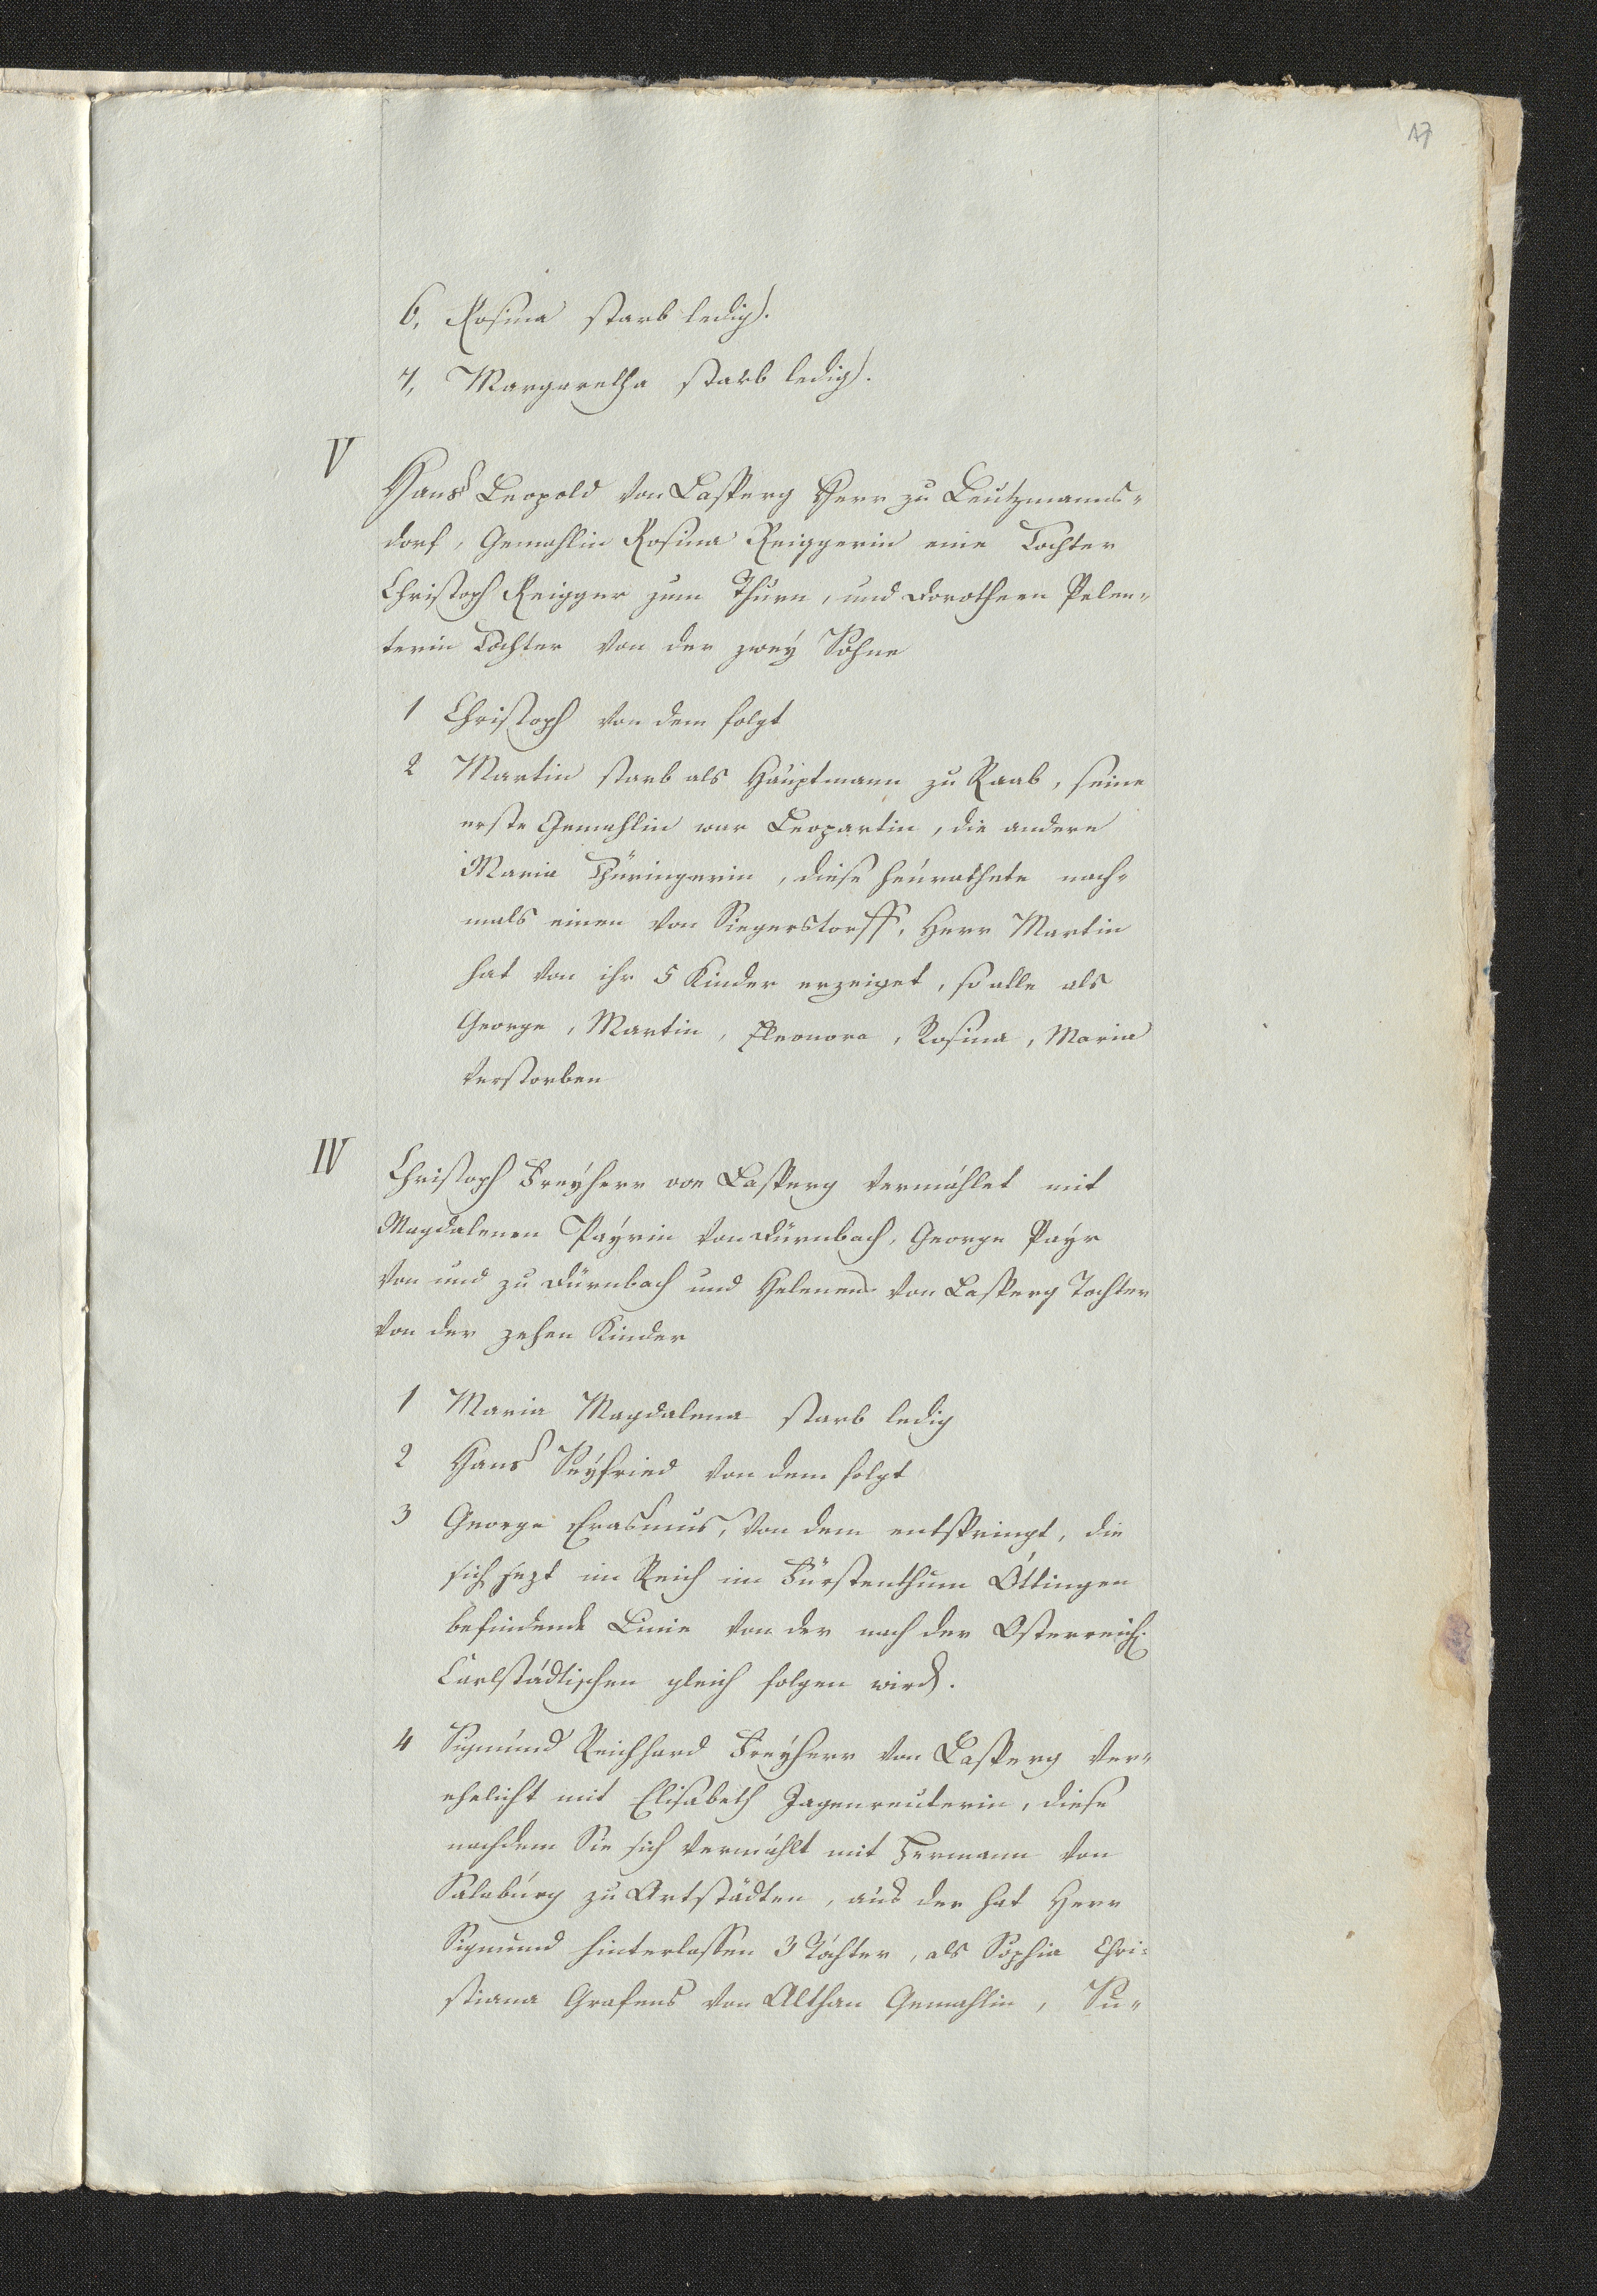 17
6, Rosina starb ledig.
7, Margaretha starb ledig.
V
Hans Leopold von Lasperg Herr zu Leutzmanns¬
dorf, Gemahlin Rosina Reiggerin eine Tochter
Christoph Reigger zum Thurn, und Dorotheen Pelen¬
terin Tochter von der zweÿ Söhne
1 Christoph von dem folgt
2 Martin starb als Hauptmann zu Raab, seine
erste Gemahlin war Leopartin, die andere
Maria Thüringerin, diese heurathete nach¬
mals einen von Siegerstorff, Herr Martin
hat von ihr 5 Kinder erzeiget, so alle als
George, Martin, Eleonora, Rosina, Maria
verstorben
IV
Christoph Freÿherr von Lasperg vermählet mit
Magdalenen Paÿrin von Dürnbach, George Paÿr
von und zu Dürnbach und Helenen von Lasperg Tochter
von der zehen Kinder
1 Maria Magdalena starb ledig
2 Hans Seÿfried von dem folgt
3 George Erasmus, von dem entspringt, die
sich jezt im Reich im Fürstenthum Öttingen
befindende Linie von der nach der Osterreich.
Carlstädtischen gleich folgen wird.
4 Sigmund Reichhard Freÿherr von Lasperg ver¬
ehelicht mit Elisabeth Jagenreuterin, diese
nachdem Sie sich vermählt mit Hermann von
Salaburg zu Artstädten, aus der hat Herr
Sigmund hinterlassen 3 Töchter, als Sophia Chri¬
stiana Grafens von Althan Gemahlin, Su¬